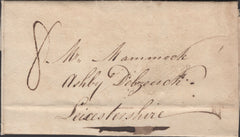 8
Mr. Mammock
Ashby Delzouch
Leicestershire